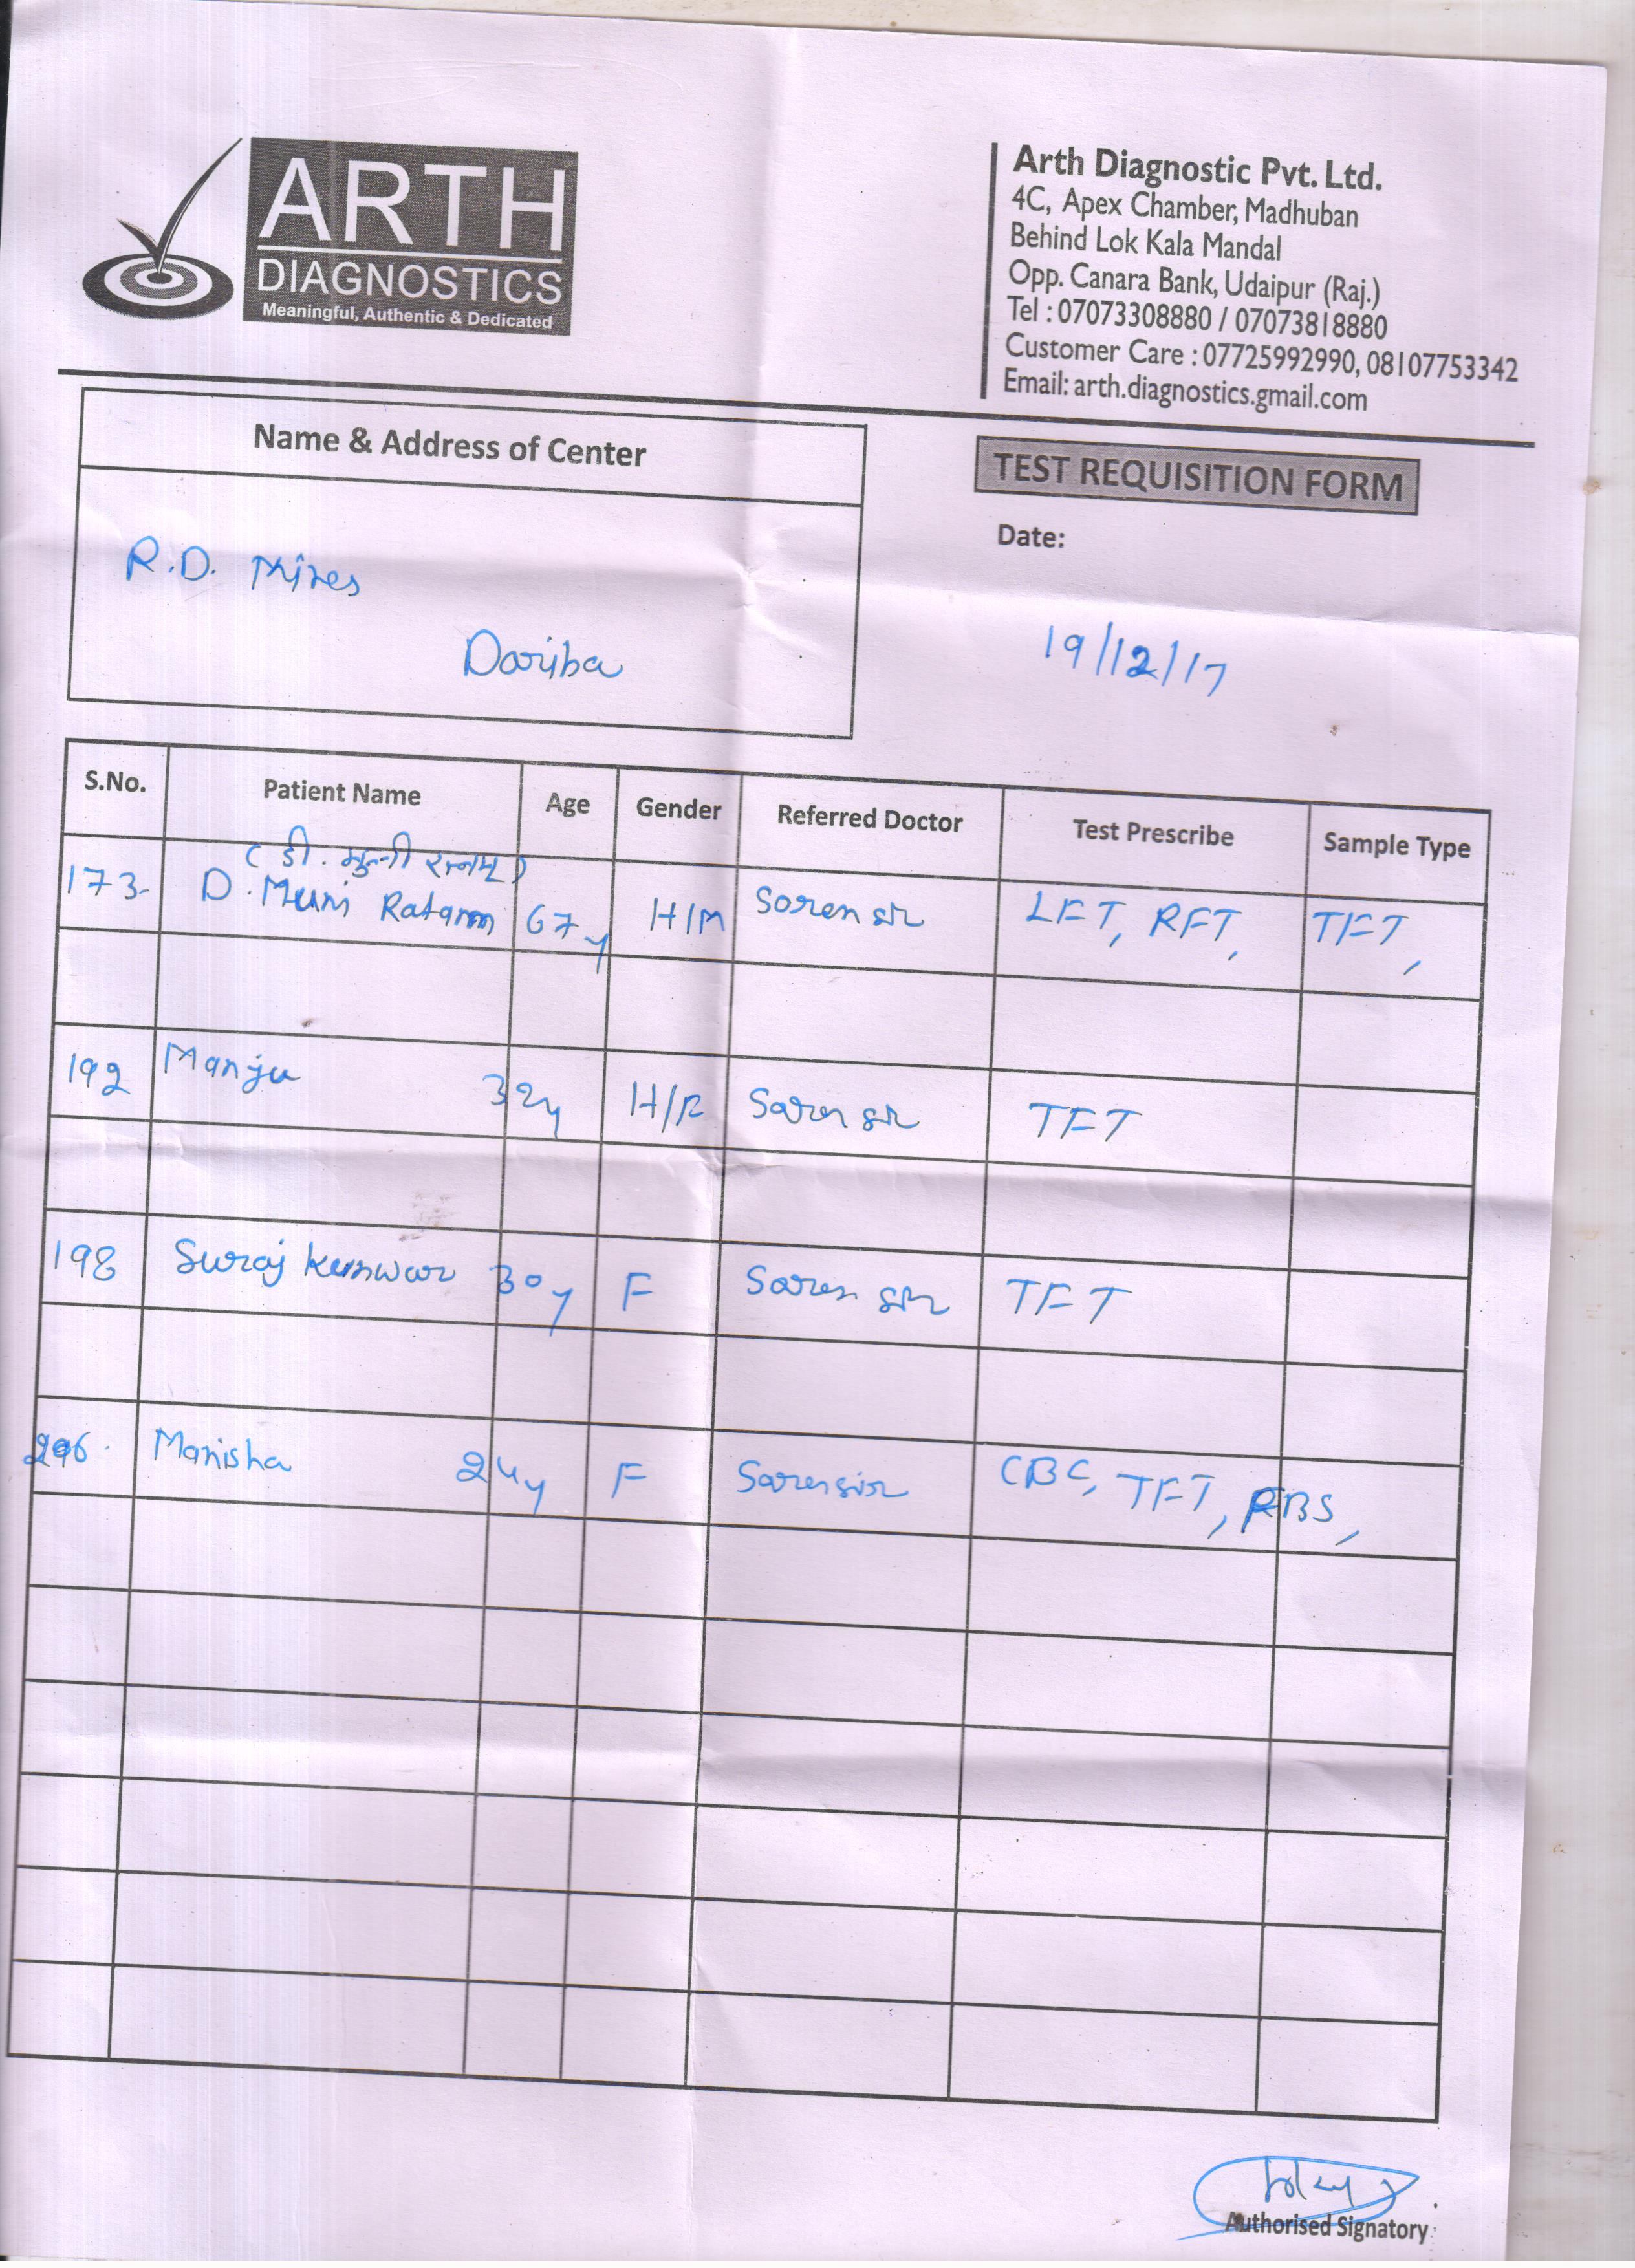 ARTH
DIAGNOSTICS
Meaningful, Authentic & Dedicated
Arth Diagnostic Pvt. Ltd.
4C, Apex Chamber, Madhuban
Behind Lok Kala Mandal
Opp. Canara Bank, Udaipur (Raj.)
Tel : 07073308880 / 07073818880
Customer Care : 07725992990, 08107753342
Email: arth.diagnostics.gmail.com
Name & Address of Center
R.D. Mines
Dariba
TEST REQUISITION FORM
Date:
19/12/17
S.No. Patient Name Age Gender Referred Doctor Test Prescribe Sample Type
(डी. मुनी रत्नम)
173- D. Muni Ratanm 67y H/M Soren sir LFT, RFT, TFT,
192 Manju 32y H/F Saren sir TFT
198 Suraj kunwar 30y F Saren sir TFT
Manisha 24y F Saren sir CBC, TFT, RBS,
Authorised Signatory